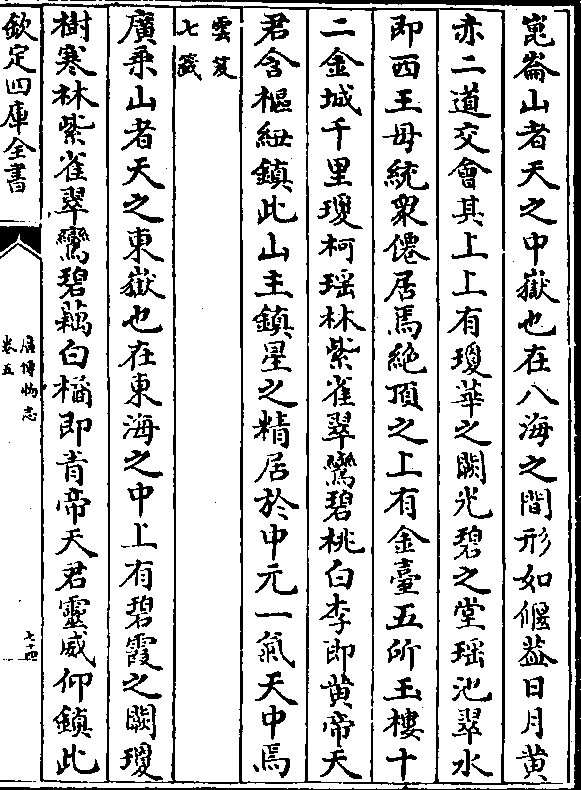 崑崙山者天之中嶽也在八海之間形如偃葢日月黄
赤二道交會其上上有瓊華之闕光碧之堂瑶池翠水
即西王母統衆僊居焉絶頂之上有金臺五所玉樓十
二金城千里瓊柯瑶林紫雀翠鸞碧桃白李即黄帝天
君含樞紐鎮此山主鎮星之精居於中元一氣天中焉
雲笈
七籖
廣乗山者天之東嶽也在東海之中上有碧霞之闕瓊
樹寒林紫雀翠鸞碧藕白橘即青帝天君靈威仰鎮此
欽定四庫全書
廣博物志
卷五
七十四